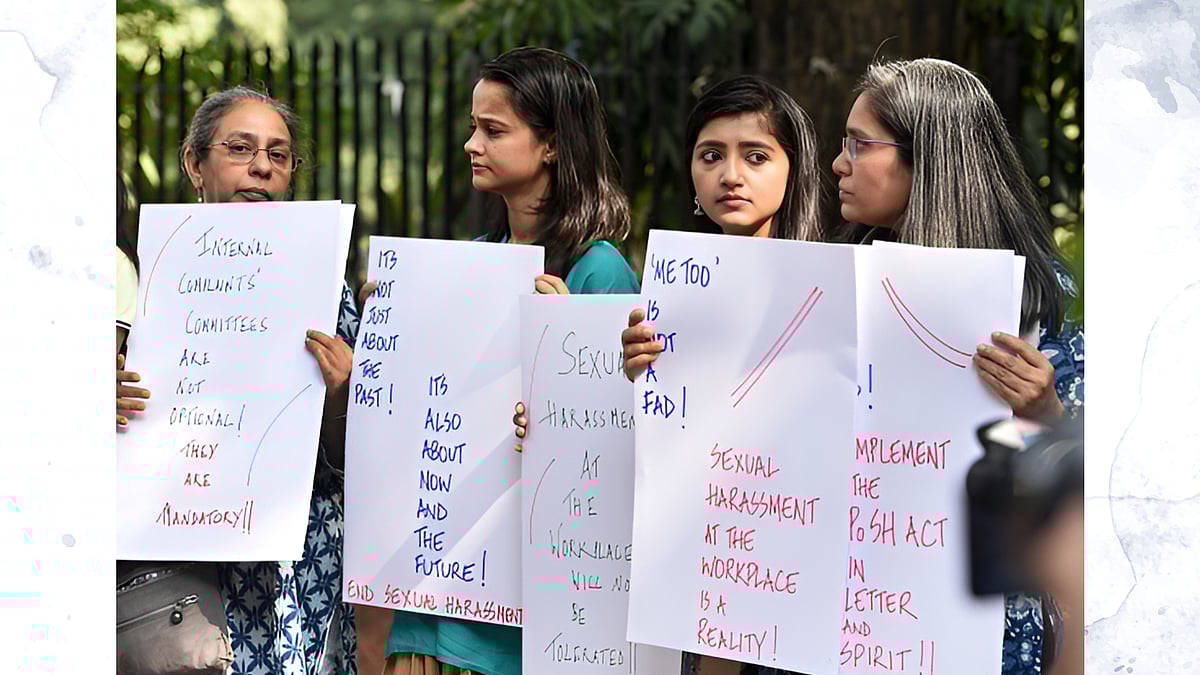 INTERNAL
COMPLAINTS'
COMMITTEES
ARE
NOT
OPTIONAL!
THEY
ARE
MANDATORY!!
ITS
NOT
JUST
ABOUT
THE
PAST!
ITS
ALSO
ABOUT
NOW
AND
THE
FUTURE!
END SEXUAL HARASSMENT
SEXUA
HARASSMEN
AT
THE
WORKPLACE
WILL NO
BE
TOLERATED!!
'ME TOO'
IS
NOT
A
FAD!
SEXUAL
HARASSMENT
AT THE
WORKPLACE
IS A
REALITY!
!
MPLEMENT
THE
PoSH ACT
IN
LETTER
AND
SPIRIT!!